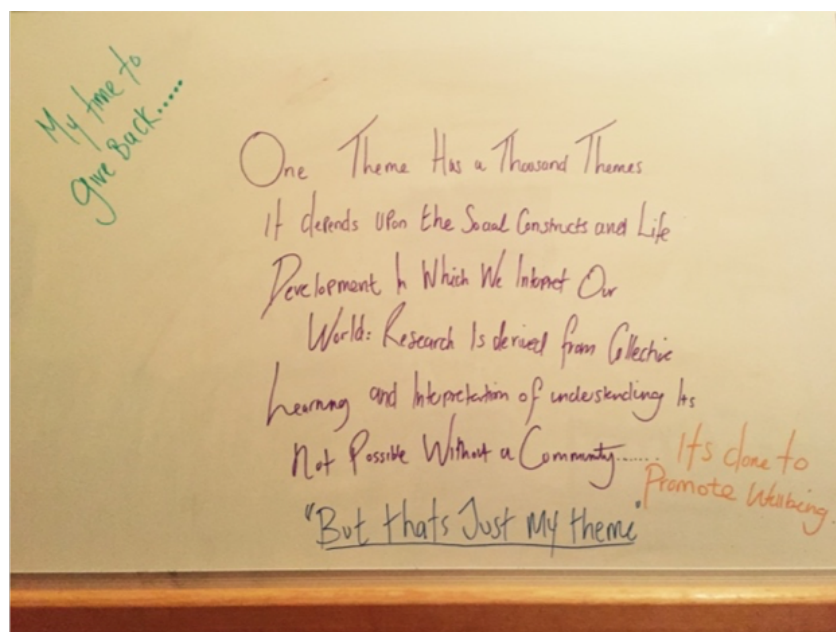 My time to
give Back.....
One Theme Has a Thousand Themes
It depends upon the Social Constructs and Life
Development In Which We Interpret Our
World: Research Is derived from Collective
Learning and Interpretation of understanding Its
Not Possible Without a Community.......
Its done to
Promote Wellbeing
"But thats Just My theme"